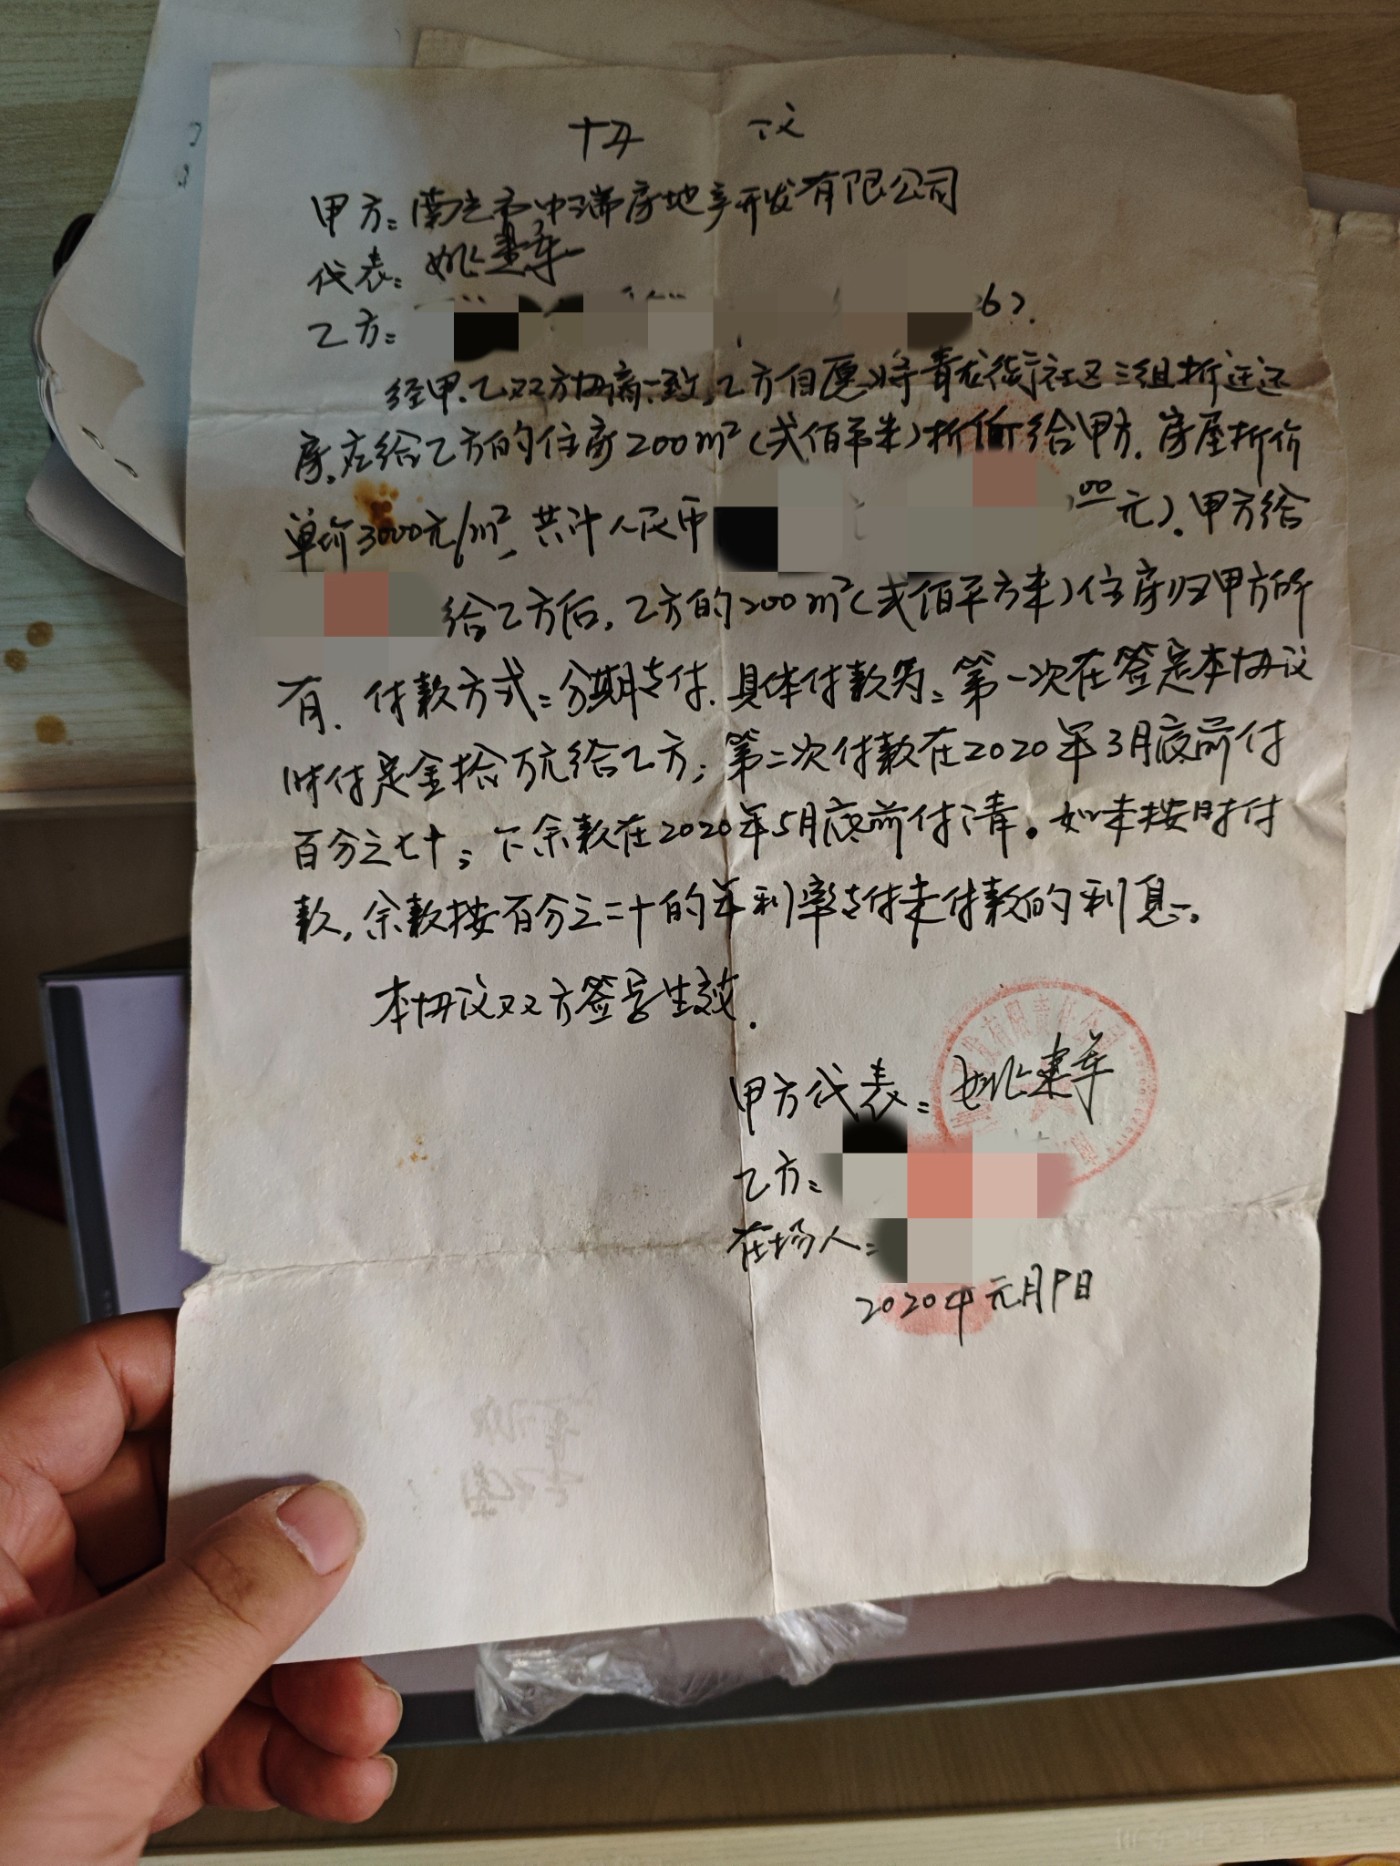 协 议
甲方：南充市中瑞房地产开发有限公司
代表：姚建军
乙方：
经甲.乙双方协商一致，乙方自愿将青龙街社区三组拆迁还
房，应给乙方的住房200m²（贰佰平米）折价给甲方．房屋折价
单价3000元/m²，共计人民币 00元）．甲方给
给乙方后，乙方的200m²（贰佰平方米）住房归甲方所
有．付款方式：分期支付．具体付款为：第一次在签定本协议
时付定金拾万元给乙方；第二次付款在2020年3月底前付
百分之七十；下余款在2020年5月底前付清。如未按时付
款，余款按百分之二十的年利率支付未付款的利息。
本协议双方签字生效．
甲方代表：姚建军
乙方：
在场人：
2020年元月9日